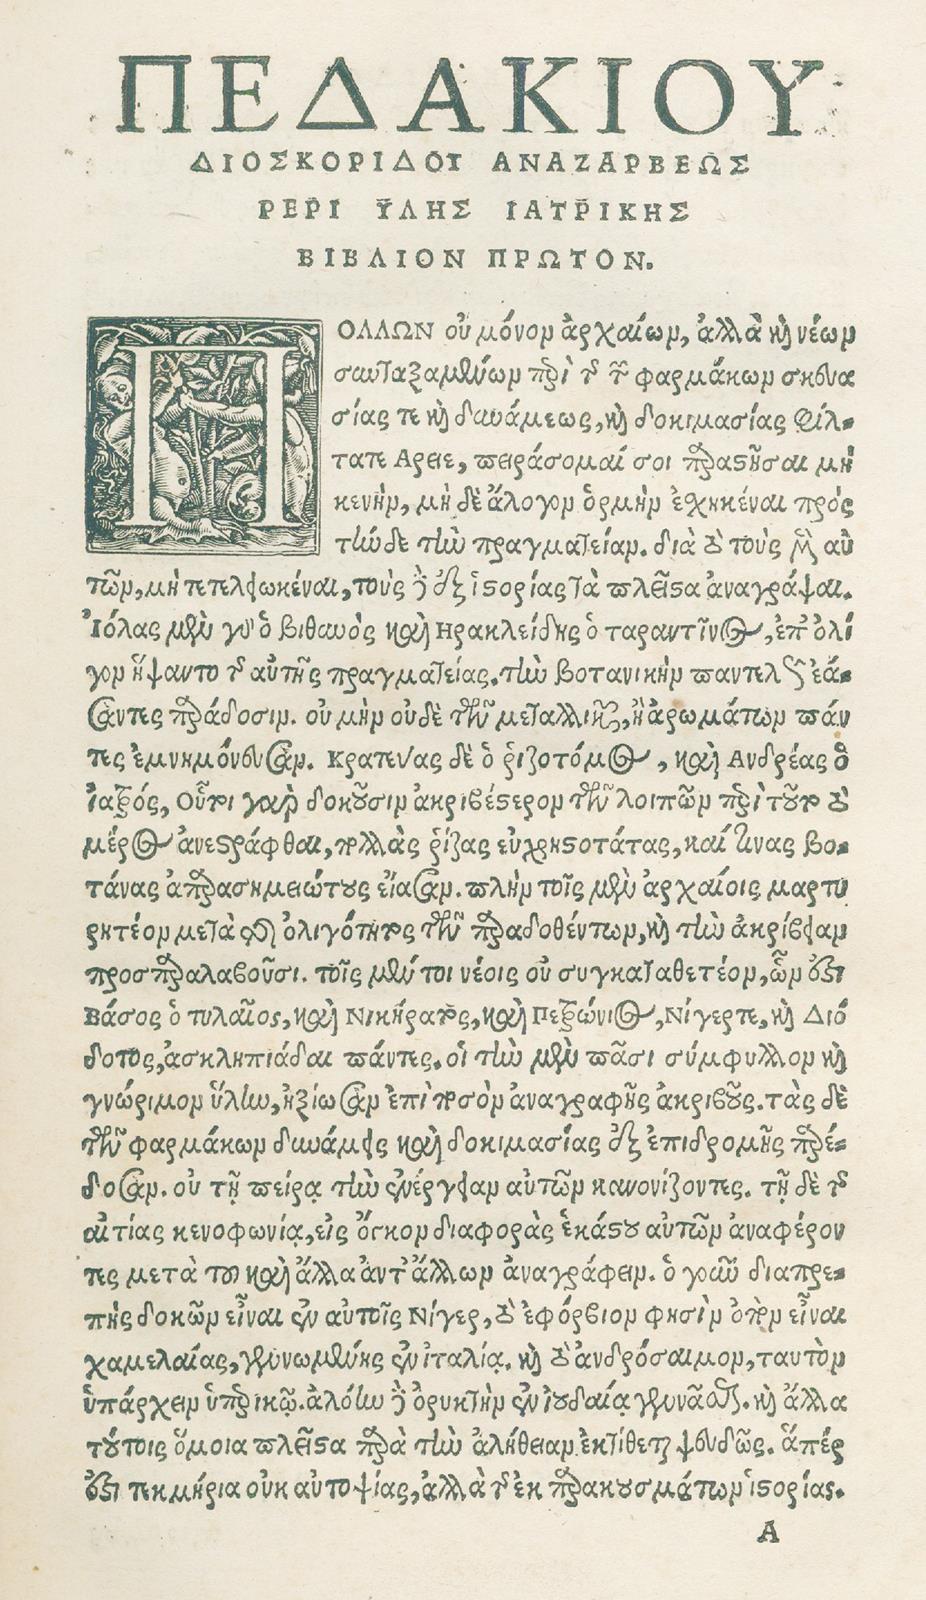 ΠΕΔΑΚΙΟΥ
ΔΙΟΣΚΟΡΙΔΟΥ ΑΝΑΖΑΡΒΕΩΣ
ΡΕΡΙ ΥΛΗΣ ΙΑΤΡΙΚΗΣ
ΒΙΒΛΙΟΝ ΠΡΩΤΟΝ.
ΠΟΛΛΩΝ οὐ μόνον ἀρχαίων, ἀλλὰ καὶ νέων
συνταξαμένων περὶ τῆς τῶν φαρμάκων σκευα
σίας τε καὶ δυνάμεως, καὶ δοκιμασίας φίλ-
τατε Αρειε, πειράσομαί σοι παραστῆσαι μὴ
κενὴν, μὴ δὲ ἄλογον ὁρμὴν ἐχηκέναι πρὸς
τήνδε τὴν πραγματείαν. διὰ τὸ τοὺς μὲν αὐ
τῶν, μὴ τετελειωκέναι, τοὺς δὲ ἐξ ἱστορίας τὰ πλεῖστα ἀναγράψαι.
Ἰόλας μὲν γοῦν ὁ βιθυνὸς καὶ Ηρακλείδης ὁ ταραντῖνος, ἐπ' ὀλί
γον ἥψαντο τῆς αὐτῆς πραγματείας. τὴν βοτανικὴν παντελῶς ἐά-
σαντες παράδοσιν. οὐ μὴν οὐδὲ τῶν μεταλλικῶν, ἢ ἀρωμάτων πάν
τες ἐμνημόνευσαν. Κρατευας δὲ ὁ ῥιζοτόμος, καὶ Ανδρέας ὁ
ἰατρός, Οὗτοι γὰρ δοκοῦσιν ἀκριβέστερον τῶν λοιπῶν περὶ τοῦτο τὸ
μέρος ἀνεστράφθαι, πολλὰς ῥίζας εὐχρηστοτάτας, καί τινας βο-
τάνας ἀπαρασημειώτους εἴασαν. πλὴν τοῖς μὲν ἀρχαίοις μαρτυ
ρητέον μετὰ τῆς ὀλιγότητος τῶν παραδοθέντων, καὶ τὴν ἀκρίβειαν
προσπαραλαβοῦσι. τοῖς μέν τοι νέοις οὐ συγκαταθετέον, ὧν ἐστι
Βάσος ὁ τυλαῖος, καὶ Νικήρατος, καὶ Πετρώνιος, Νίγερτε, καὶ Διό
δοτος, ἀσκληπιάδαι πάντες. οἱ τὴν μὲν πᾶσι σύμφυλλον καὶ
γνώριμον ὕλην, ἠξίωσαν ἐπὶ ποσὸν ἀναγραφῆς ἀκριβοῦς. τὰς δὲ
τῶν φαρμάκων δυνάμεις καὶ δοκιμασίας ἐξ ἐπιδρομῆς παρέ-
δοσαν. οὐ τῇ πείρᾳ τὴν ἐνέργειαν αὐτῶν κανονίζοντες. τῇ δὲ τῆς
αἰτίας κενοφωνίᾳ, εἰς ὄγκον διαφορὰς ἑκάστου αὐτῶν ἀναφέρον
τες μετὰ τοῦ καὶ ἄλλα ἀντ' ἄλλων ἀναγράφειν. ὁ γοῦν διαπρε-
πὴς δοκῶν εἶναι ἐν αὐτοῖς Νίγερ, τὸ ἐφόρβιον φησὶν ὀπὸν εἶναι
χαμελαίας, γεννωμένης ἐν ἰταλίᾳ. καὶ τὸ ἀνδρόσαιμον, ταυτὸν
ὑπάρχειν ὑπερικῷ. ἀλόην δὲ ὀρυκτὴν ἐν ἰουδαίᾳ γεννᾶσθαι. καὶ ἄλλα
τούτοις ὅμοια πλεῖστα παρὰ τὴν ἀλήθειαν ἐκτίθεται ψευδῶς. ἅπέρ
ἐστι τεκμήρια οὐκ αὐτοψίας, ἀλλὰ τῆς ἐκ παρακουσμάτων ἱστορίας.
A